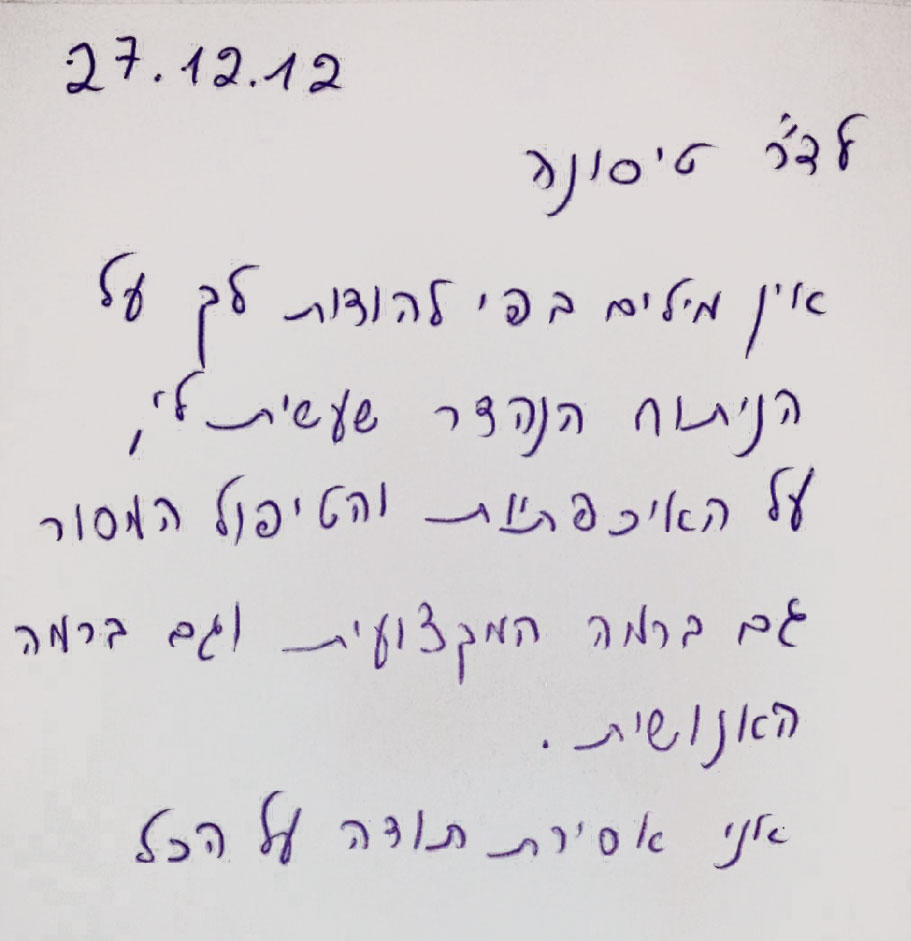 27.12.12
לד"ר טיסונה
אין מילים בפי להודות לך על
הניתוח הנהדר שעשית לי,
על האיכפתיות והטיפול המסור
גם ברמה המקצועית וגם ברמה
האנושית.
אני אסירת תודה על הכל